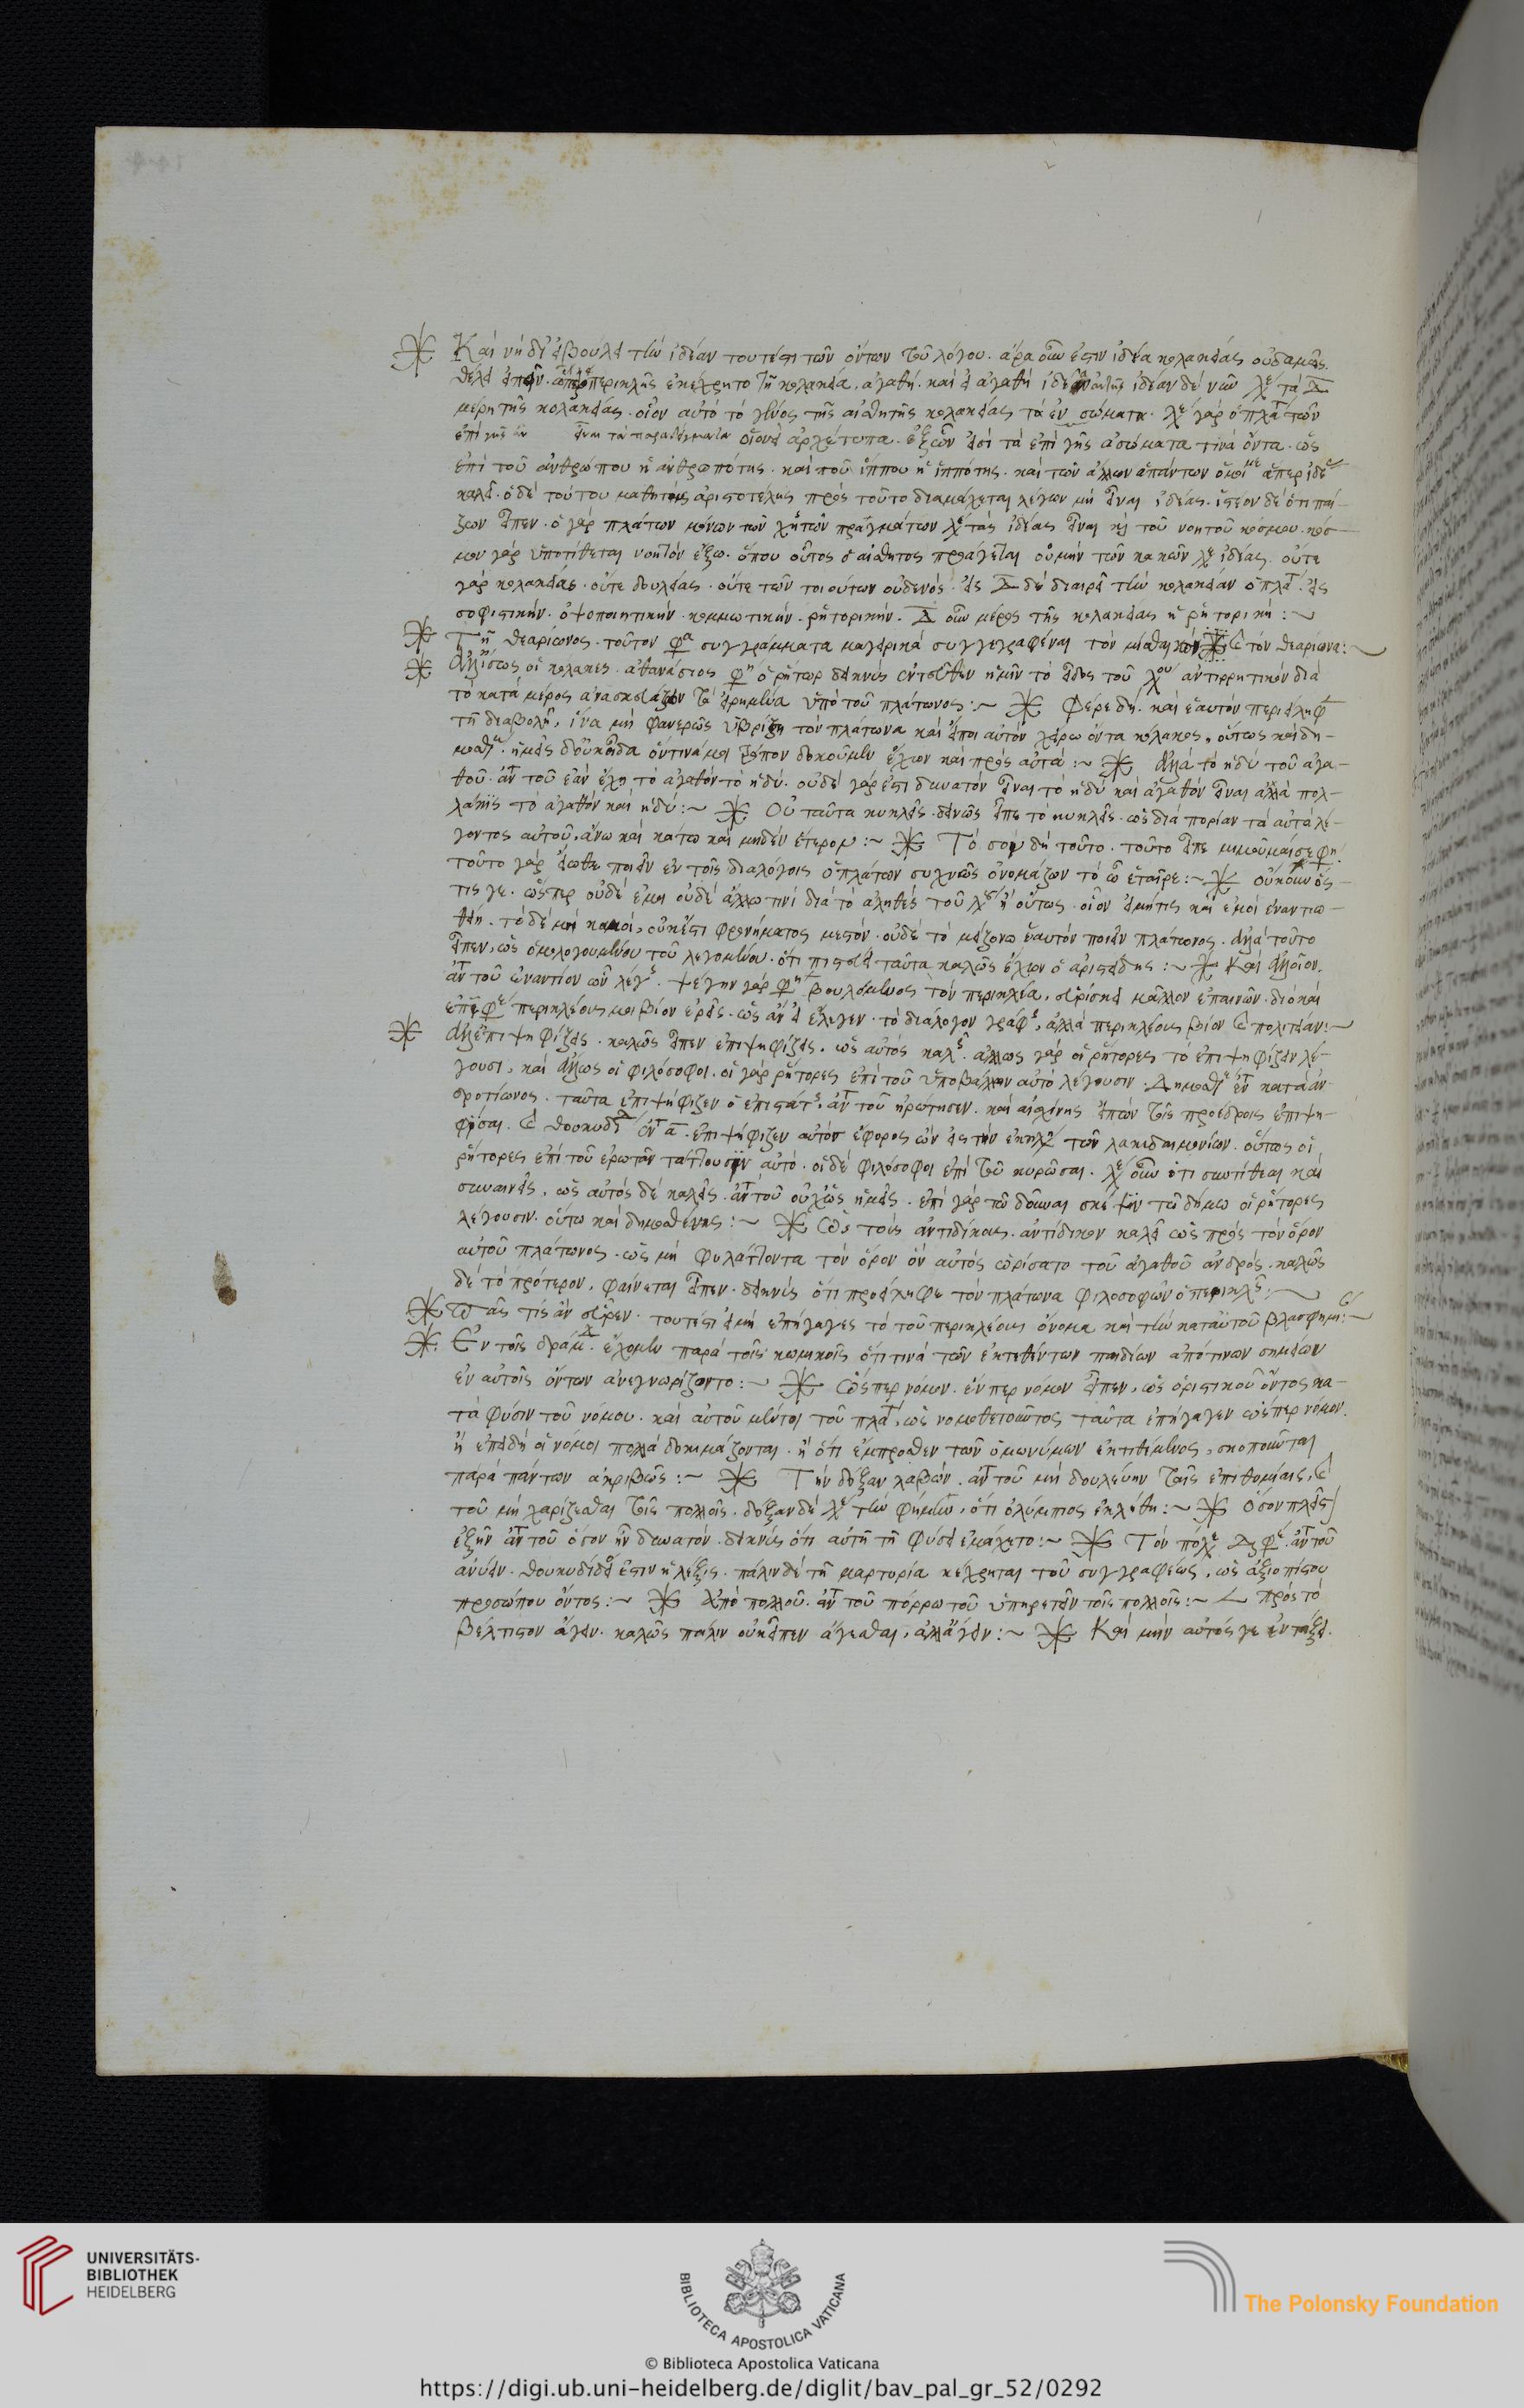 Καὶ νὴ δί' εἰ βούλει τὴν ἰδέαν τουτέστι τῶν ὄντων τοῦ λόγου. ἆρα οὖν ἔστιν ἰδέα κολακείας οὐδαμῶς.
θέλει εἰπεῖν περικλῆς ἐκέχρητο τῇ κολακεία, ἀγαθή. καὶ εἰ ἀγαθὴ ἰδέαν δὲ νῦν λέγει τὰ Δ
μέρη τῆς κολακείας. οἷον αὐτὸ τὸ γένος τῆς αἰσθητῆς κολακείας τὰ ἐν σώματι. λέγει γὰρ ὁ πλάτων
ἐπὶ γῆς εἶναι τὰ παραδείγματα οἱονεὶ ἀρχέτυπα. ἐξ ὧν εἰσὶ τὰ ἐπὶ γῆς ἀσώματα τινὰ ὄντα. ὡς
ἐπὶ τοῦ ἀνθρώπου ἡ ἀνθρωπότης. καὶ τοῦ ἵππου ἡ ἱππότης. καὶ τῶν ἄλλων ἁπάντων ὁμοί ἅπερ ἰδέ
καλεῖ. ὁ δὲ τούτου μαθητὴς ἀριστοτέλης πρὸς τοῦτο διαμάχεται λέγων μὴ εἶναι ἰδέας. ἰστέον δὲ ὅτι παί-
ζων εἶπεν. ὁ γὰρ πλάτων μόνων τῶν χρηστῶν πραγμάτων λέγει τὰς ἰδέας εἶναι καὶ τοῦ νοητοῦ κόσμου. κόσ-
μον γὰρ ὑποτίθεται νοητὸν ἔξω. ὅπου οὗτος ὁ αἰσθητὸς προάγεται οὐ μὴν τῶν κακῶν λέγει ἰδέας. οὔτε
γὰρ κολακείας. οὔτε δουλείας. οὔτε τῶν τοιούτων οὐδενός. εἰς Δ δὲ διαιρεῖ τὴν κολακείαν ὁ πλάτ. εἰς
σοφιστικήν. ὀψοποιητικήν. κομμωτικήν. ῥητορικήν. Δ οὖν μέρος τῆς κολακείας ἡ ῥητορική:~
Τῇ θεαρίωνος. τοῦτον φα συγγράμματα μαγειρικὰ συγγεγραφέναι τὸν μίθαικον καὶ τὸν θεαρίωνα:~
Ἀλλ' ἴσως οἱ κόλακες. ἀθανάσιος φη ὁ ῥήτωρ δεικνὺς ἐντεῦθεν ἡμῖν τὸ εἶδος τοῦ λόγου ἀντιρρητικὸν διὰ
τὸ κατὰ μέρος ἀνασκευάζειν τὰ εἰρημένα ὑπὸ τοῦ πλάτωνος:~ Φέρε δή. καὶ ἑαυτὸν περιείληφε
τῇ διαβολῇ, ἵνα μὴ φανερῶς ὑβρίζῃ τὸν πλάτωνα καὶ εἴποι αὐτὸν χείρω ὄντα κόλακος, οὕτως καὶ δη-
μοσθ. ἡμεῖς δ' οὐκ οἶδα ὅντινά μοι τρόπον δοκοῦμεν ἔχειν καὶ πρὸς αὐτά:~ Ἀλλὰ τὸ ἡδὺ τοῦ ἀγα-
θοῦ. ἀντὶ τοῦ ἐὰν ἔχῃ τὸ ἀγαθὸν τὸ ἡδύ. οὐδὲ γάρ ἐστι δυνατὸν εἶναι τὸ ἡδὺ καὶ ἀγαθὸν εἶναι ἀλλὰ πολ-
λάκις τὸ ἀγαθὸν καὶ ἡδύ:~ Οὐ ταῦτα κυκλεῖς. δεινῶς εἶπε τὸ κυκλεῖς. ὡς δι' ἀπορίαν τὰ αὐτὰ λέ-
γοντος αὐτοῦ. ἄνω καὶ κάτω καὶ μηδὲν ἕτερον:~ Τὸ σὸν δὴ τοῦτο. τοῦτο εἶπε μιμούμαι σε φη.
τοῦτο γὰρ εἴωθε ποιεῖν ἐν τοῖς διαλόγοις ὁ πλάτων συχνῶς ὀνομάζων τὸ ὦ ἑταῖρε:~ Οὔκουν ὅς-
τις γε. ὥσπερ οὐδὲ ἐμοὶ οὐδὲ ἄλλω τινὶ διὰ τὸ ἀληθὲς τοῦ λόγου ἢ οὕτως. οἷον εἰ μήτις καὶ ἐμοὶ ἐναντιω-
θείη. τὸ δὲ μὴ κἀμοί, οὐκ ἔστι φρονήματος μεστόν. οὐδὲ τὸ μείζονα ἑαυτὸν ποιεῖν πλάτωνος. ἀλλὰ τοῦτο
εἶπεν, ὡς ὁμολογουμένου τοῦ λεγομένου. ὅτι πιστεύει ταῦτα καλῶς ἔχειν ὁ ἀριστείδης:~ Καὶ ἀλλοῖον.
ἀντὶ τοῦ ἐναντίον ὧν λέγει. ψέγειν γὰρ φη βουλόμενος τὸν περικλέα, εὑρίσκει μᾶλλον ἐπαινῶν. διὸ καὶ
ἐπιφέρει περικλέους μοι βίον ἐρεῖς. ὡς ἂν εἰ ἔλεγεν. τὸ διάλογον γράφεις, ἀλλὰ περικλέους βίον καὶ πολιτείαν:~
Ἀλλ' ἐπιψηφίζεις. καλῶς εἶπεν ἐπιψηφίζεις. ὡς αὐτὸς καλεῖ. ἄλλως γὰρ οἱ ῥήτορες τὸ ἐπιψηφίζειν λέ-
γουσι, καὶ ἄλλως οἱ φιλόσοφοι. οἱ γὰρ ῥήτορες ἐπὶ τοῦ ὑποβάλλειν αὐτὸ λέγουσιν. Δημοσθ ἐν τῶ κατὰ ἀν-
δροτίωνος. ταῦτα ἐπεψήφιζεν ὁ ἐπιστάτ. ἀντὶ τοῦ ἠρώτησεν. καὶ αἰσχίνης εἰπὼν τοῖς προέδροις ἐπιψη-
φίσαι. καὶ θουκυδί ἐν τῇ α. ἐπεψήφιζεν αὐτὸν ἔφορος ὢν εἰς τὴν ἐκκλ τῶν λακεδαιμονίων. οὕτως οἱ
ῥήτορες ἐπὶ τοῦ ἐρωτᾶν τάττουσιν αὐτό. οἱ δὲ φιλόσοφοι ἐπὶ τοῦ κυρῶσαι. λέγει οὖν ὅτι συντίθεσαι καὶ
συναινεῖς, ὡς αὐτὸς δὲ καλεῖς. ἀντὶ τοῦ οὐχ ὡς ἡμεῖς. ἐπὶ γὰρ τῶ δοῦναι σκέψιν τῶ δήμω οἱ ῥήτορες
λέγουσιν. οὕτω καὶ δημοσθένης:~ Ὡς τοὺς ἀντιδίκους. ἀντίδικον καλεῖ ὡς πρὸς τὸν ὅρον
αὐτοῦ πλάτωνος. ὡς μὴ φυλάττοντα τὸν ὅρον ὃν αὐτὸς ὡρίσατο τοῦ ἀγαθοῦ ἀνδρός. καλῶς
δὲ τὸ πρότερον, φαίνεται εἶπεν. δεικνὺς ὅτι προείληφε τὸν πλάτωνα φιλοσοφῶν ὁ περικλῆς:~
Πῶς τίς ἂν εὗρεν. τουτέστι εἰ μὴ ἐπήγαγες τὸ τοῦ περικλέους ὄνομα καὶ τὴν κατ' αὐτοῦ βλασφημί:~
Ἐν τοῖς δράμ. ἔχομεν παρὰ τοῖς κωμικοῖς ὅτι τινὰ τῶν ἐκτεθέντων παιδίων ἀπό τινων σημείων
ἐν αὐτοῖς ὄντων ἀνεγνωρίζοντο:~ Ὥσπερ νόμον. ἕνπερ νόμον εἶπεν, ὡς ὁριστικοῦ ὄντος κα-
τὰ φύσιν τοῦ νόμου. καὶ αὐτοῦ μέντοι τοῦ πλάτ, ὡς νομοθετοῦντος ταῦτα ἐπήγαγεν ὥσπερ νόμον.
ἢ ἐπειδὴ οἱ νόμοι πολλὰ δοκιμάζονται. ἢ ὅτι ἔμπροσθεν τῶν ὁμωνύμων ἐκτιθέμενος, σκοποῦνται
παρὰ πάντων ἀκριβῶς:~ Τὴν δόξαν λαβών. ἀντὶ τοῦ μὴ δουλεύειν ταῖς ἐπιθυμίαις, καὶ
τοῦ μὴ χαρίζεσθαι τοῖς πολλοῖς. δόξαν δὲ λέγει τὴν φήμην, ὅτι ὀλύμπιος ἐκλήθη:~ Ὅσον πλεῖς
ἐξῆν ἀντὶ τοῦ ὅσον ἦν δυνατόν. δεικνὺς ὅτι αὐτῇ τῇ φύσει ἐμάχετο:~ Τὸν πόλε διέφε. ἀντὶ τοῦ
ἀνύειν. θουκυδίδου ἔστιν ἡ λέξις. πάλιν δὲ τῇ μαρτυρία κέχρηται τοῦ συγγραφέως, ὡς ἀξιοπίστου
προσώπου ὄντος:~ Ἀπὸ πολλοῦ. ἀντὶ τοῦ πόρρω τοῦ ὑπηρετεῖν τοῖς πολλοῖς:~ πρὸς τὸ
βέλτιστον ἄγειν. καλῶς πάλιν οὐκ εἶπεν ἄγεσθαι, ἀλλ' ἄγειν:~ Καὶ μὴν αὐτός γε ἐν τάξει.
UNIVERSITÄTS-
BIBLIOTHEK
HEIDELBERG
BIBLIOTECA APOSTOLICA VATICANA
The Polonsky Foundation
© Biblioteca Apostolica Vaticana
https://digi.ub.uni-heidelberg.de/diglit/bav_pal_gr_52/0292